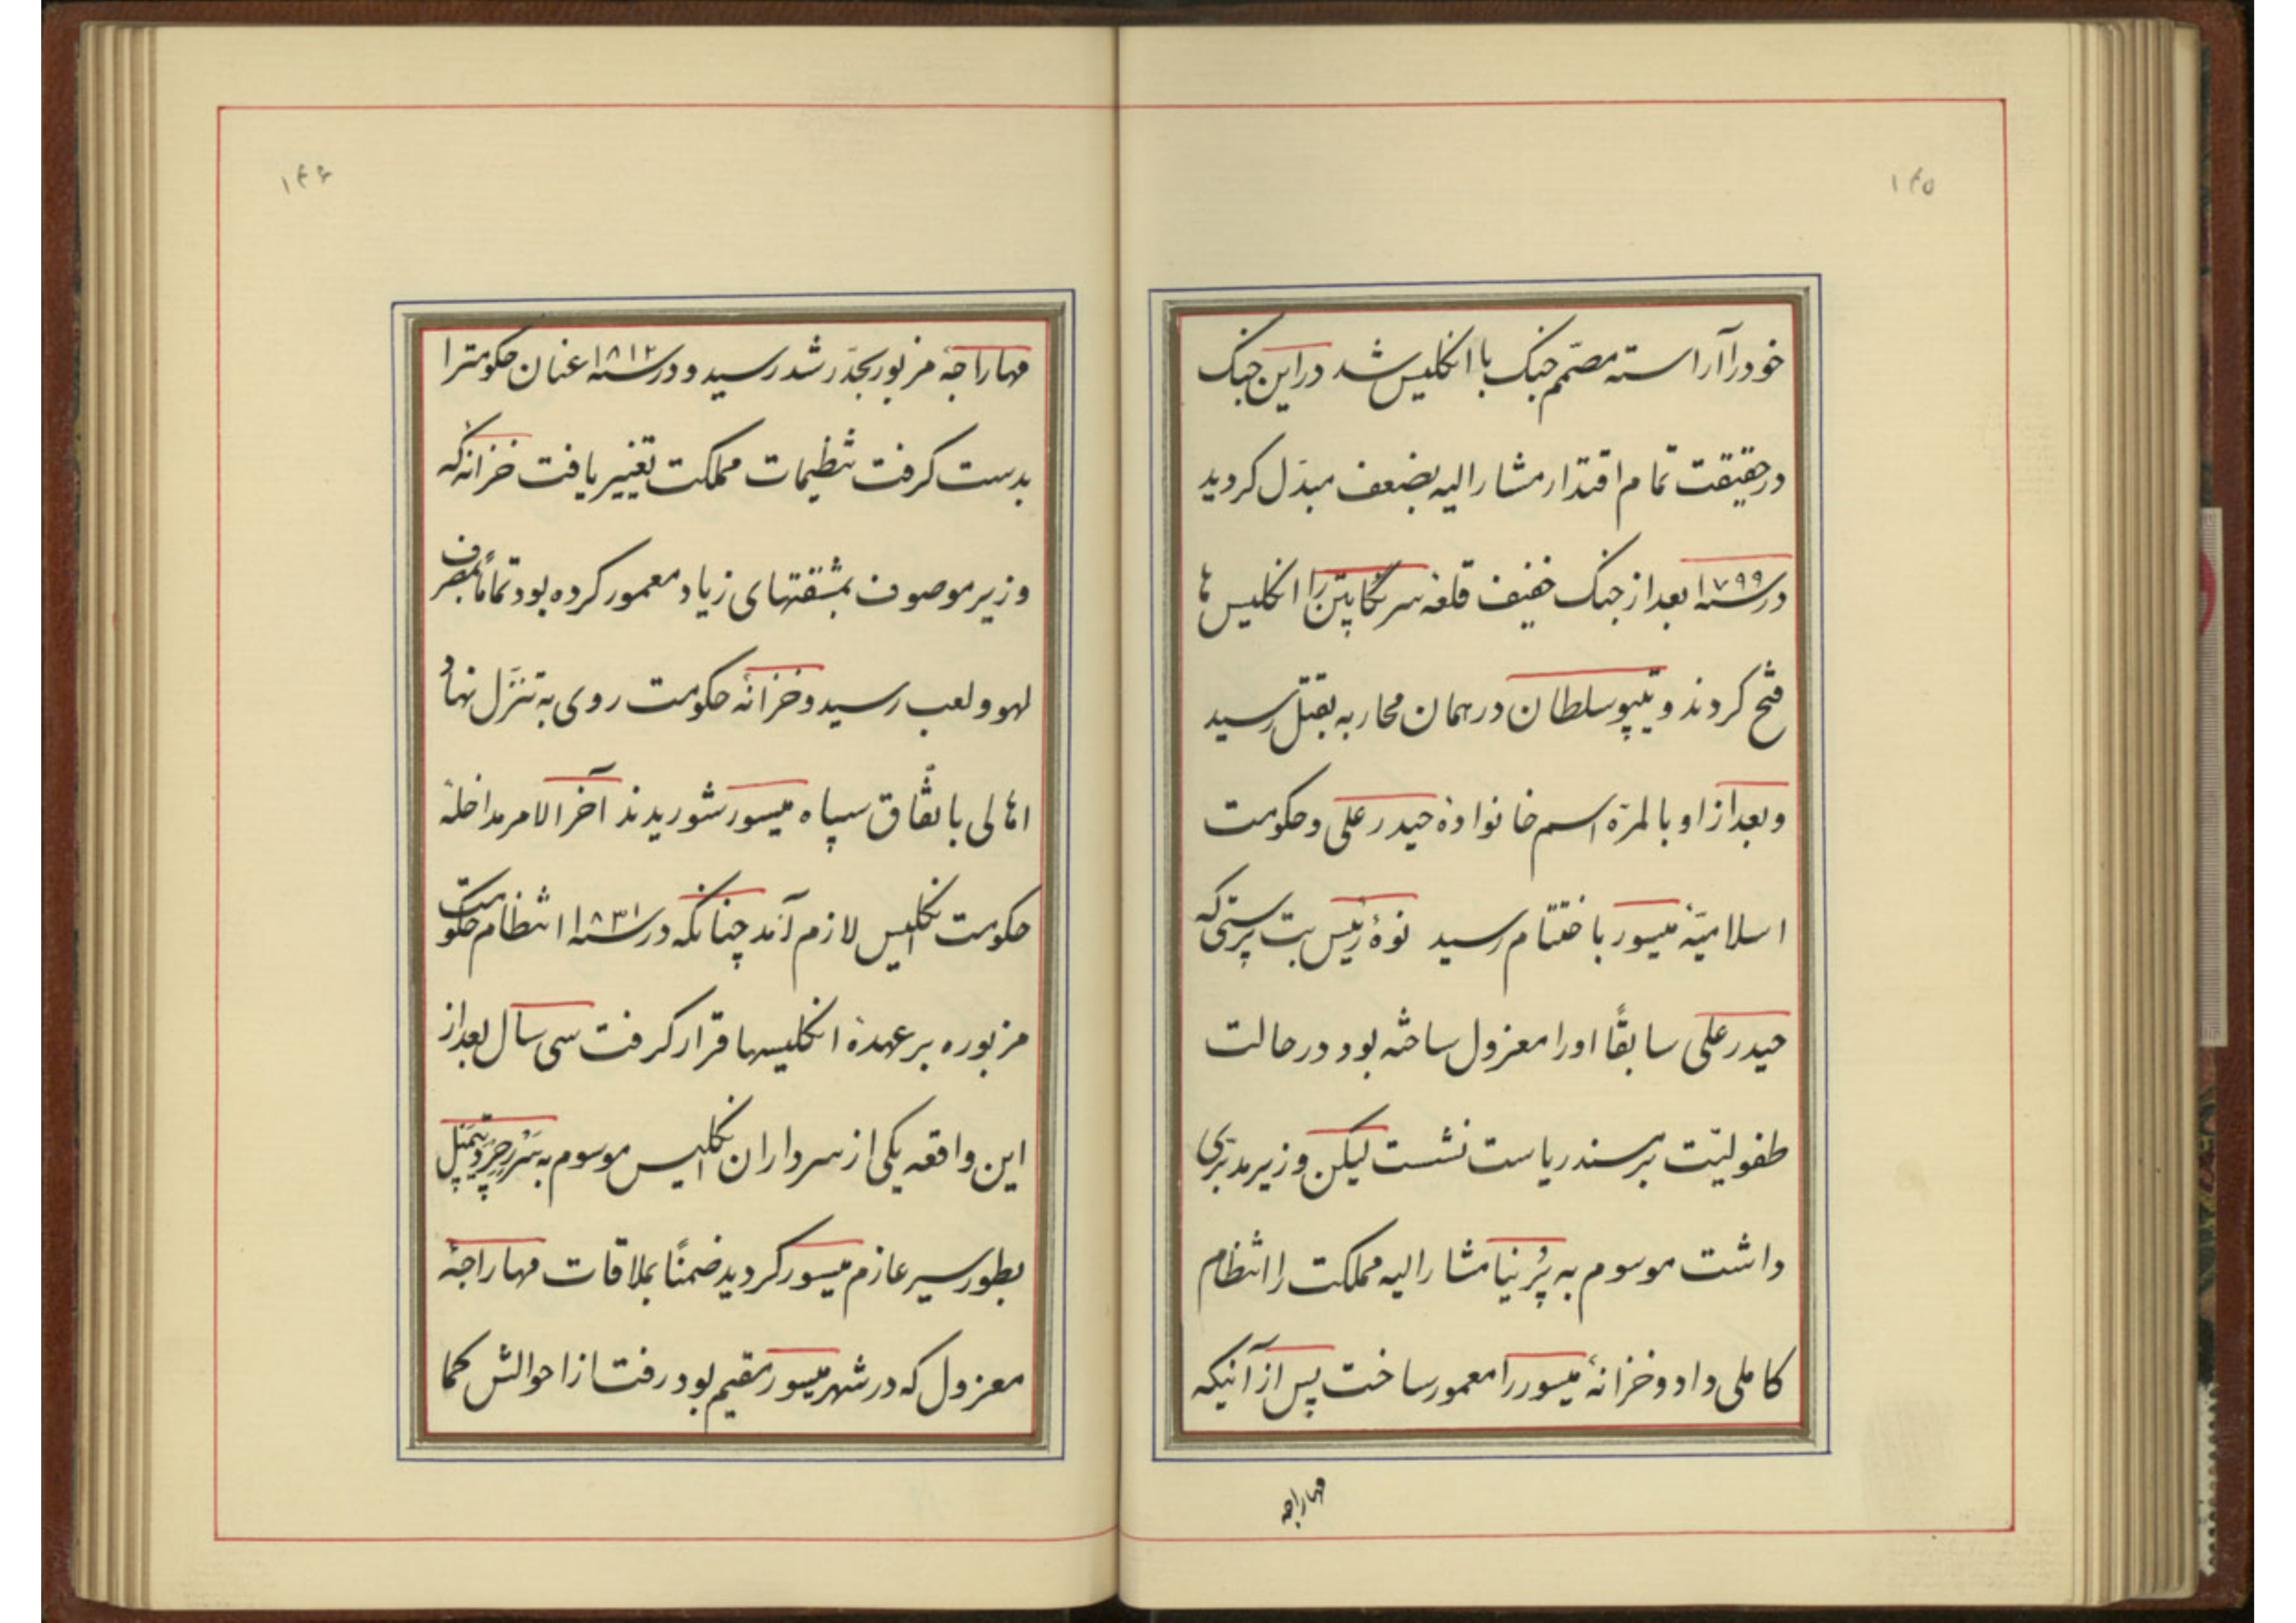 ۱۴۵
خود را آراسته مصمّم جنک با انکلیس شد در این جنک
در حقیقت تمام اقتدار مشار الیه بضعف مبدّل کردید
در سنه ۱۷۹۹ بعد از جنک خفیف قلعه سرنکاپتن را انکلیس ها
فتح کردند و تیپو سلطان در همان محاربه بقتل رسید
و بعد از او بالمرّه اسم خانوادهٔ حیدر علی و حکومت
اسلامیّهٔ میسور باختتام رسید نوهٔ رئیس بت پرستی که
حیدر علی سابقاً او را معزول ساخته بود در حالت
طفولیّت بر مسند ریاست نشست لیکن وزیر مدبّری
داشت موسوم به پُرنیا مشار الیه مملکت را انتظام
کاملی داد و خزانهٔ میسور را معمور ساخت پس از آنیکه
مهاراجه
۱۴۶
مهاراجهٔ مزبور بحدّ رشد رسید و در سنه ۱۸۱۲ عنان حکومترا
بدست کرفت تنظیمات مملکت تغییر یافت خزانهٔ که
وزیر موصوف بمشقتهای زیاد معمور کرده بود تماماً بمصرف
لهو و لعب رسید و خزانهٔ حکومت روی به تنزّل نهاد
اهالی باتفّاق سپاه میسور شوریدند آخر الامر مداخلهٔ
حکومت انکلیس لازم آمد چنانکه در سنه ۱۸۳۱ انتظام حکومت
مزبوره بر عهدهٔ انکلیسها قرار کرفت سی سال بعد از
این واقعه یکی از سرداران انکلیس موسوم به سَر رِچَرد تِمپِل
بطور سیر عازم میسور کردید ضمناً بملاقات مهاراجهٔ
معزول که در شهر میسور مقیم بود رفت از احوالش کما